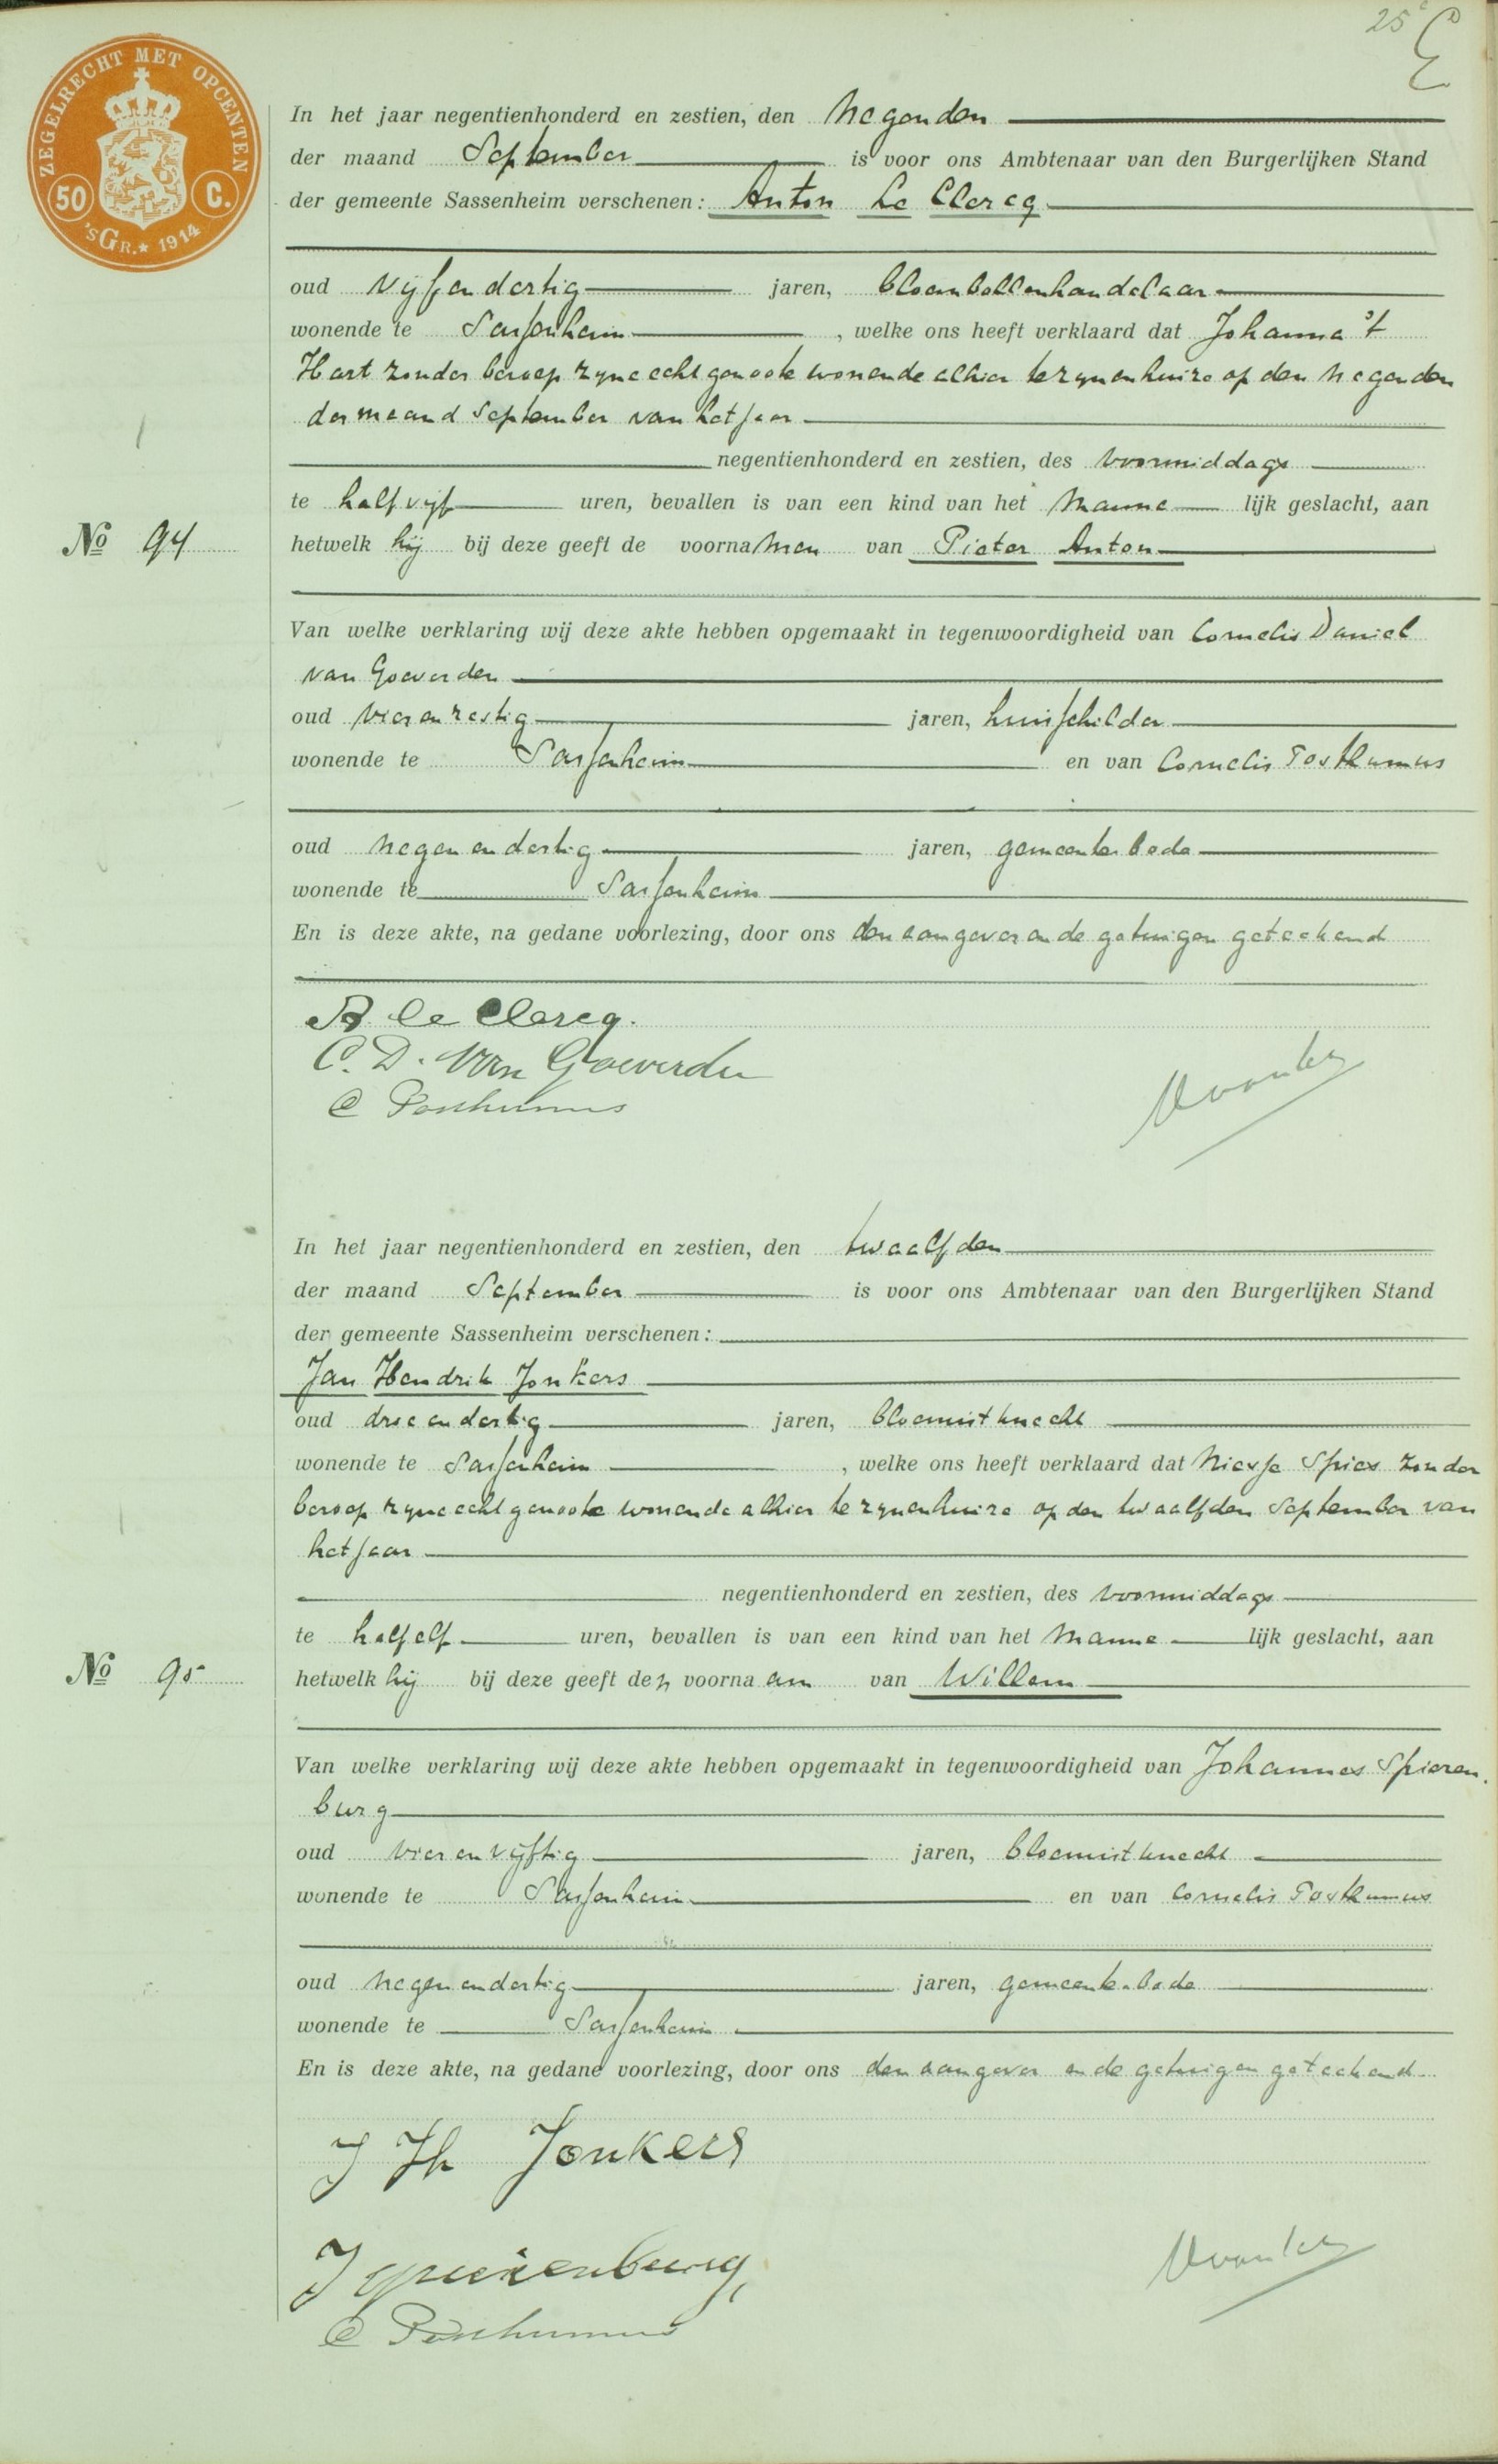 25
ZEGELRECHT MET OPCENTEN
50 C.
'SGR.★ 1914
In het jaar negentienhonderd en zestien, den Negenden
der maand September is voor ons Ambtenaar van den Burgerlijken Stand
der gemeente Sassenheim verschenen: Anton Le Clercq
oud vijfendertig jaren, bloembollenhandelaar
wonende te Sassenheim, welke ons heeft verklaard dat Johanna 't
Hart zonder beroep zyne echtgenoote wonende alhier te zynen huize op den Negenden
der maand September van het jaar
negentienhonderd en zestien, des voormiddags
te half vijf uren, bevallen is van een kind van het Manne lijk geslacht, aan
No 94 hetwelk hij bij deze geeft de voornamen van Pieter Anton
Van welke verklaring wij deze akte hebben opgemaakt in tegenwoordigheid van Cornelis Daniel
van Goeverden
oud vierenzestig jaren, huisschilder
wonende te Sassenheim en van Cornelis Posthumus
oud negenendertig jaren, gemeentebode
wonende te Sassenheim
En is deze akte, na gedane voorlezing, door ons den aangever en de getuigen geteekend
A le Clercq.
C. D. van Goeverden
C Posthumus
In het jaar negentienhonderd en zestien, den twaalfden
der maand September is voor ons Ambtenaar van den Burgerlijken Stand
der gemeente Sassenheim verschenen:
Jan Hendrik Jonkers
oud drieendertig jaren, bloemistknecht
wonende te Sassenheim, welke ons heeft verklaard dat Niesje Spies zonder
beroep zyne echtgenoote wonende alhier te zynen huize op den twaalfden September van
het jaar
negentienhonderd en zestien, des voormiddags
te half elf uren, bevallen is van een kind van het Manne lijk geslacht, aan
No 95 hetwelk hij bij deze geeft den voornaam van Willem
Van welke verklaring wij deze akte hebben opgemaakt in tegenwoordigheid van Johannes Spieren.
burg
oud vierenvijftig jaren, bloemistknecht
wonende te Sassenheim en van Cornelis Posthumus
oud negenendertig jaren, gemeentebode
wonende te Sassenheim
En is deze akte, na gedane voorlezing, door ons den aangever en de getuigen geteekend
J H Jonkers
J Spierenburg,
C Posthumus